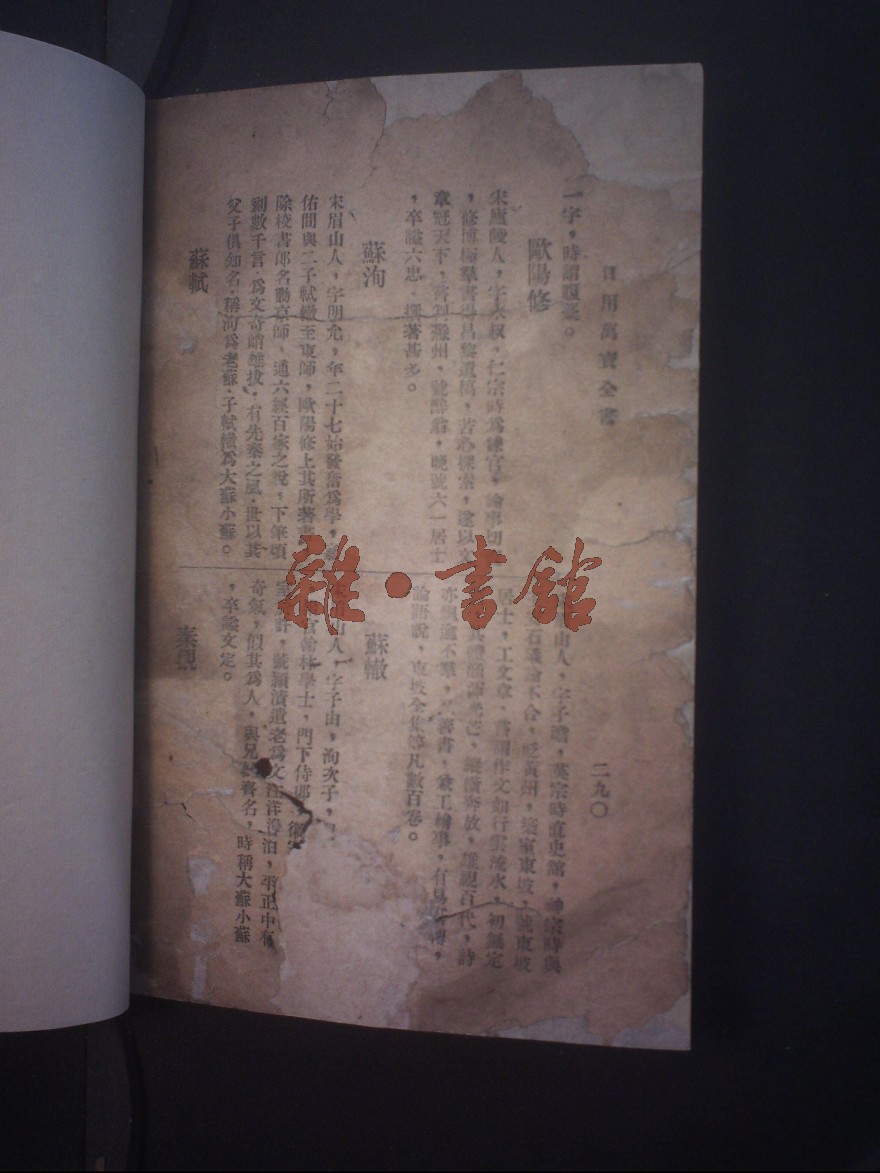 日用萬寶全書
二九〇
一字，時謂腹藁。
歐陽修
宋廬陵人，字永叔，仁宗時為諫官，論事切
，修博極羣書得昌黎遺稿，苦心探索，遂以文
章冠天下，嘗知滁州，號醉翁，晚號六一居士
，卒謚六忠　撰著甚多。
蘇洵
宋眉山人，字明允，年二十七始發奮為學，
佑間與二子軾轍至東師，歐陽修上其所著書
除校書郎名動京師、通六經百家之說，下筆頃
刻數千言，為文奇峭雄拔，有先秦之風，世以其
父子俱知名，稱洵為老蘇，子軾轍為大蘇小蘇。
蘇軾
山人，字子瞻，英宗時直史館，神宗時與
石議論不合，貶黃州，築室東坡，號東坡
居士，工文章，嘗謂作文如行雲流水，初無定
光芒，雄視百代，詩
亦超逸不羣，善書，兼工繪事，有易傳，
論語說，東坡全集等凡數百卷。
蘇轍
山人，字子由，洵次子，
官翰林學士，門下侍郎，
號潁濱遺老為文汪洋澹泊，平正中有
奇氣，似其為人，與兄齊名，時稱大蘇小蘇
，卒謚文定。
秦觀
雜·書館